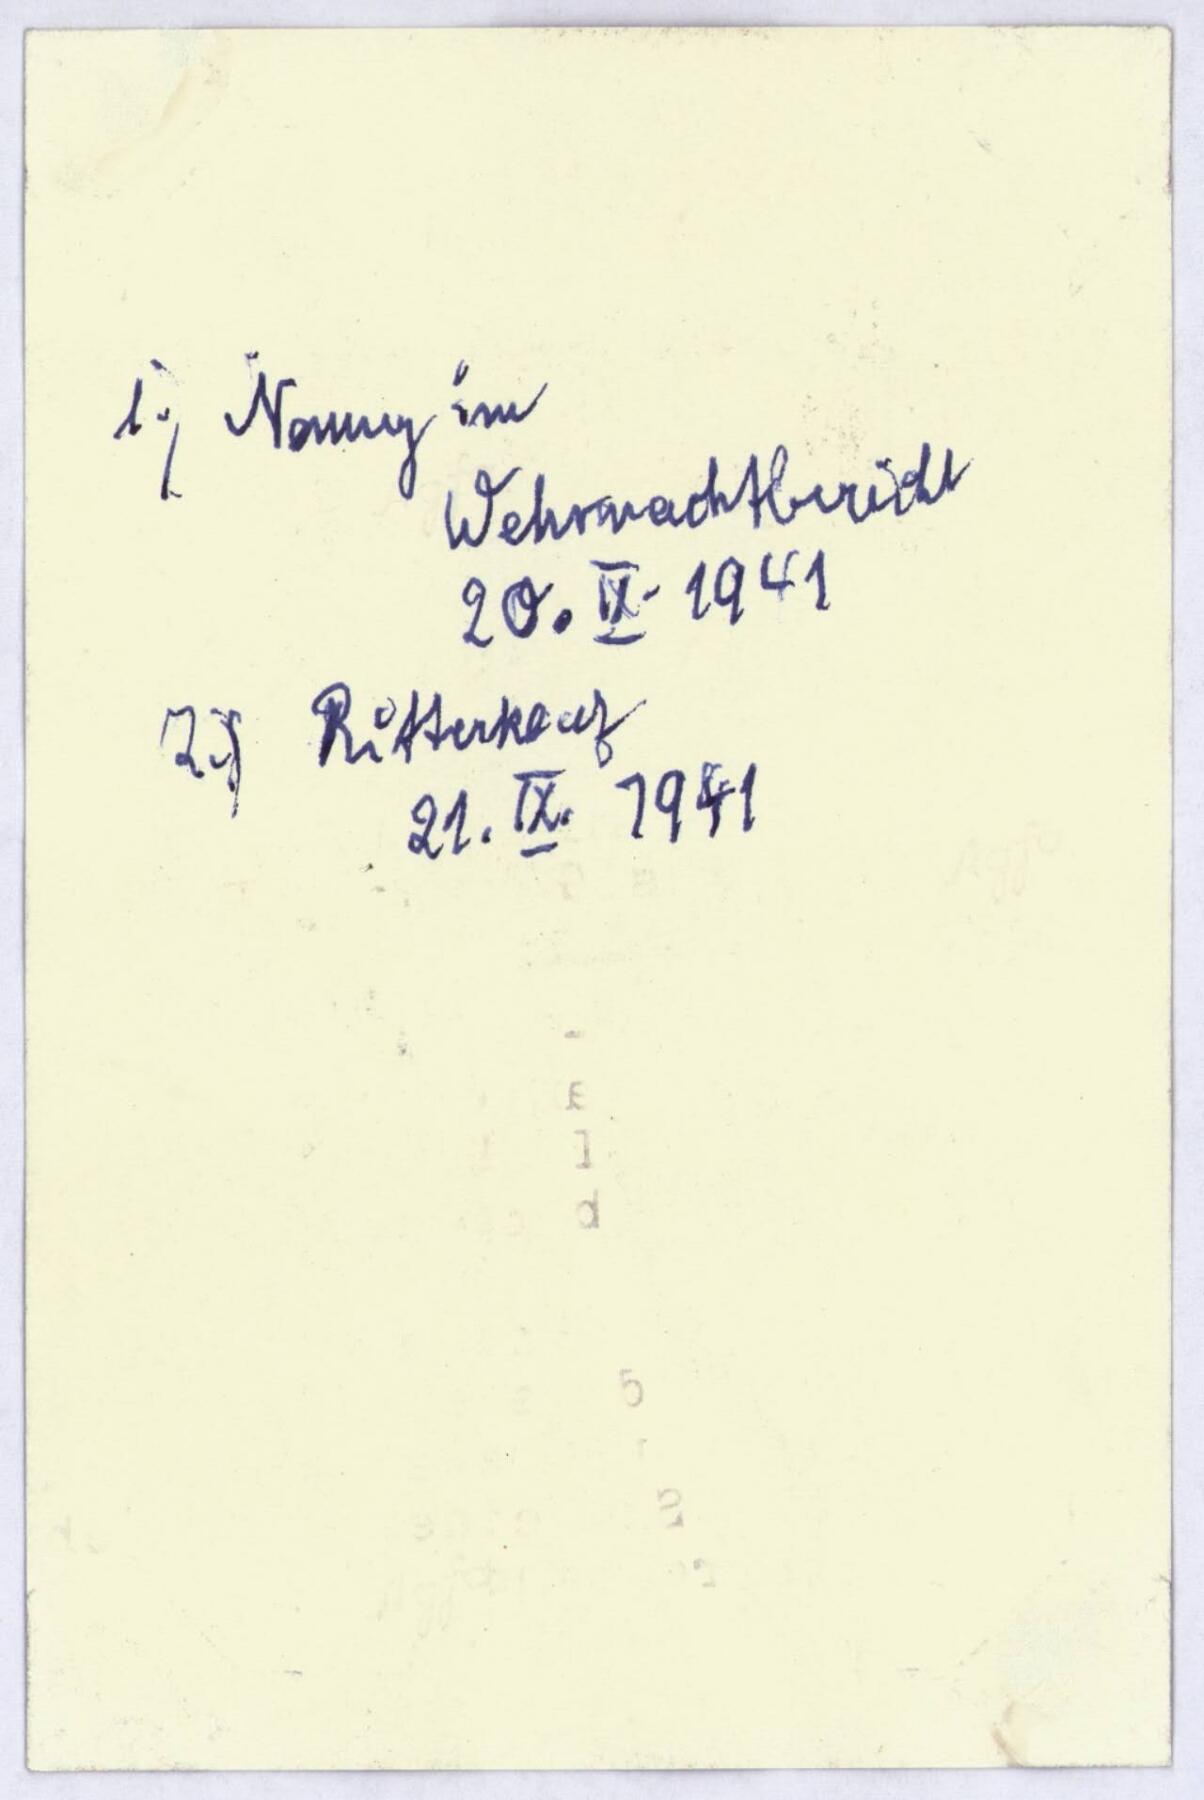 1.) Nennung im
Wehrmachtbericht
20. IX. 1941
2.) Ritterkreuz
21. IX. 1941